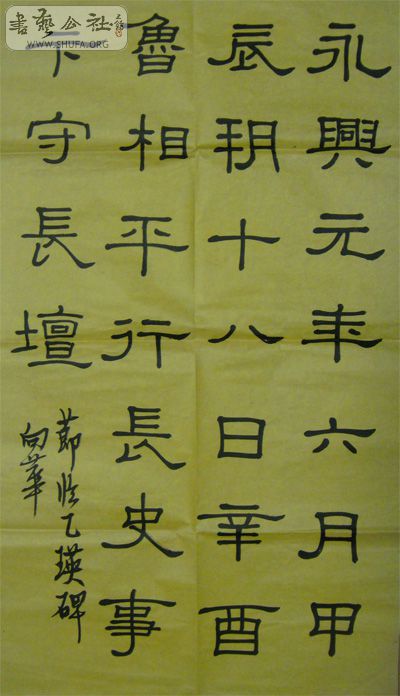 永興元年六月甲
辰朔十八日辛酉
魯相平行長史事
卞守長壇
節臨乙瑛碑
向華
書藝公社
WWW.SHUFA.ORG